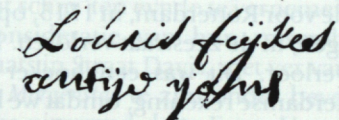 Louris fijkes
antije jans